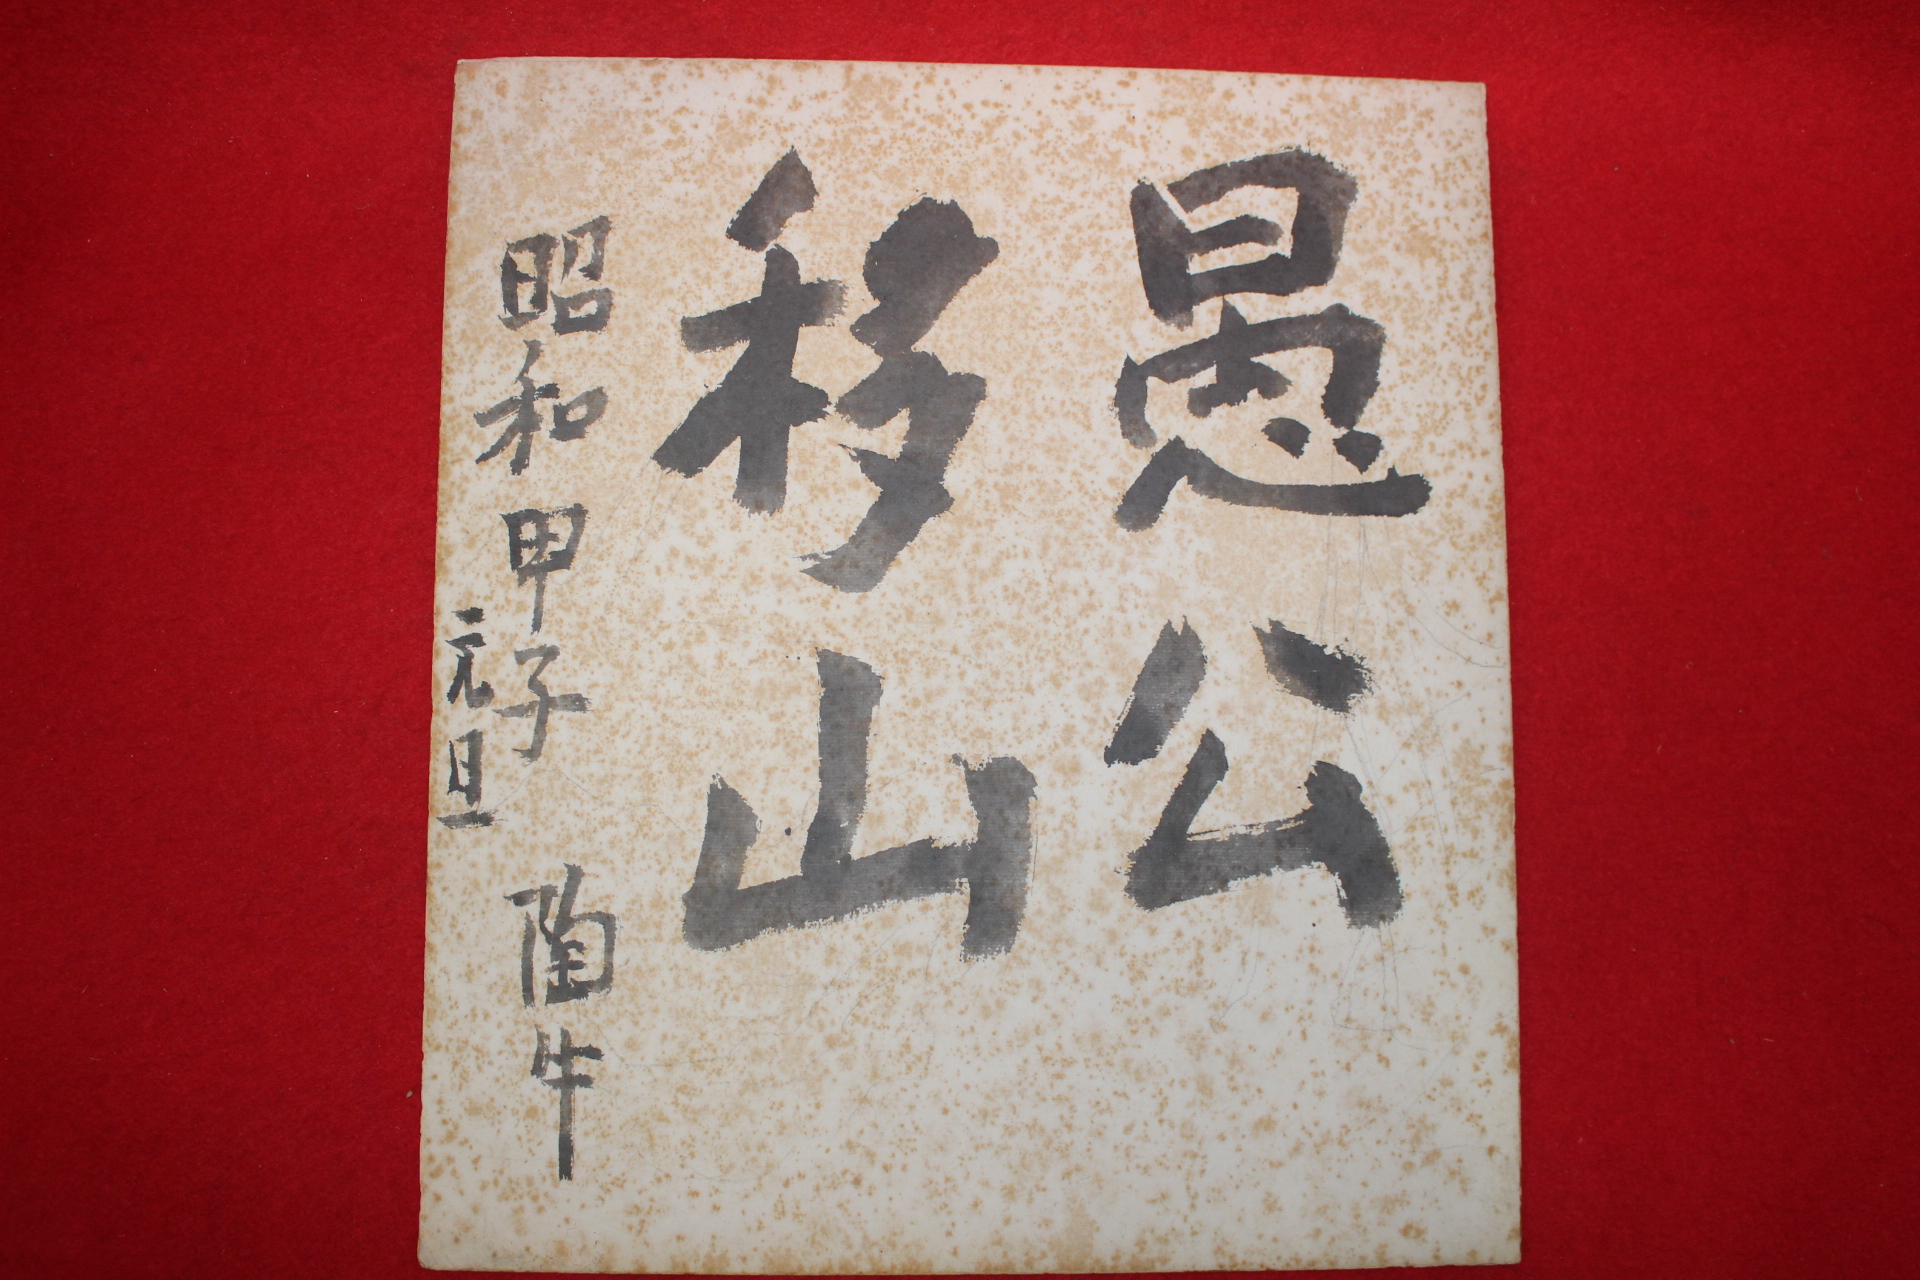 愚公
移山
昭和甲子
元旦
陶牛